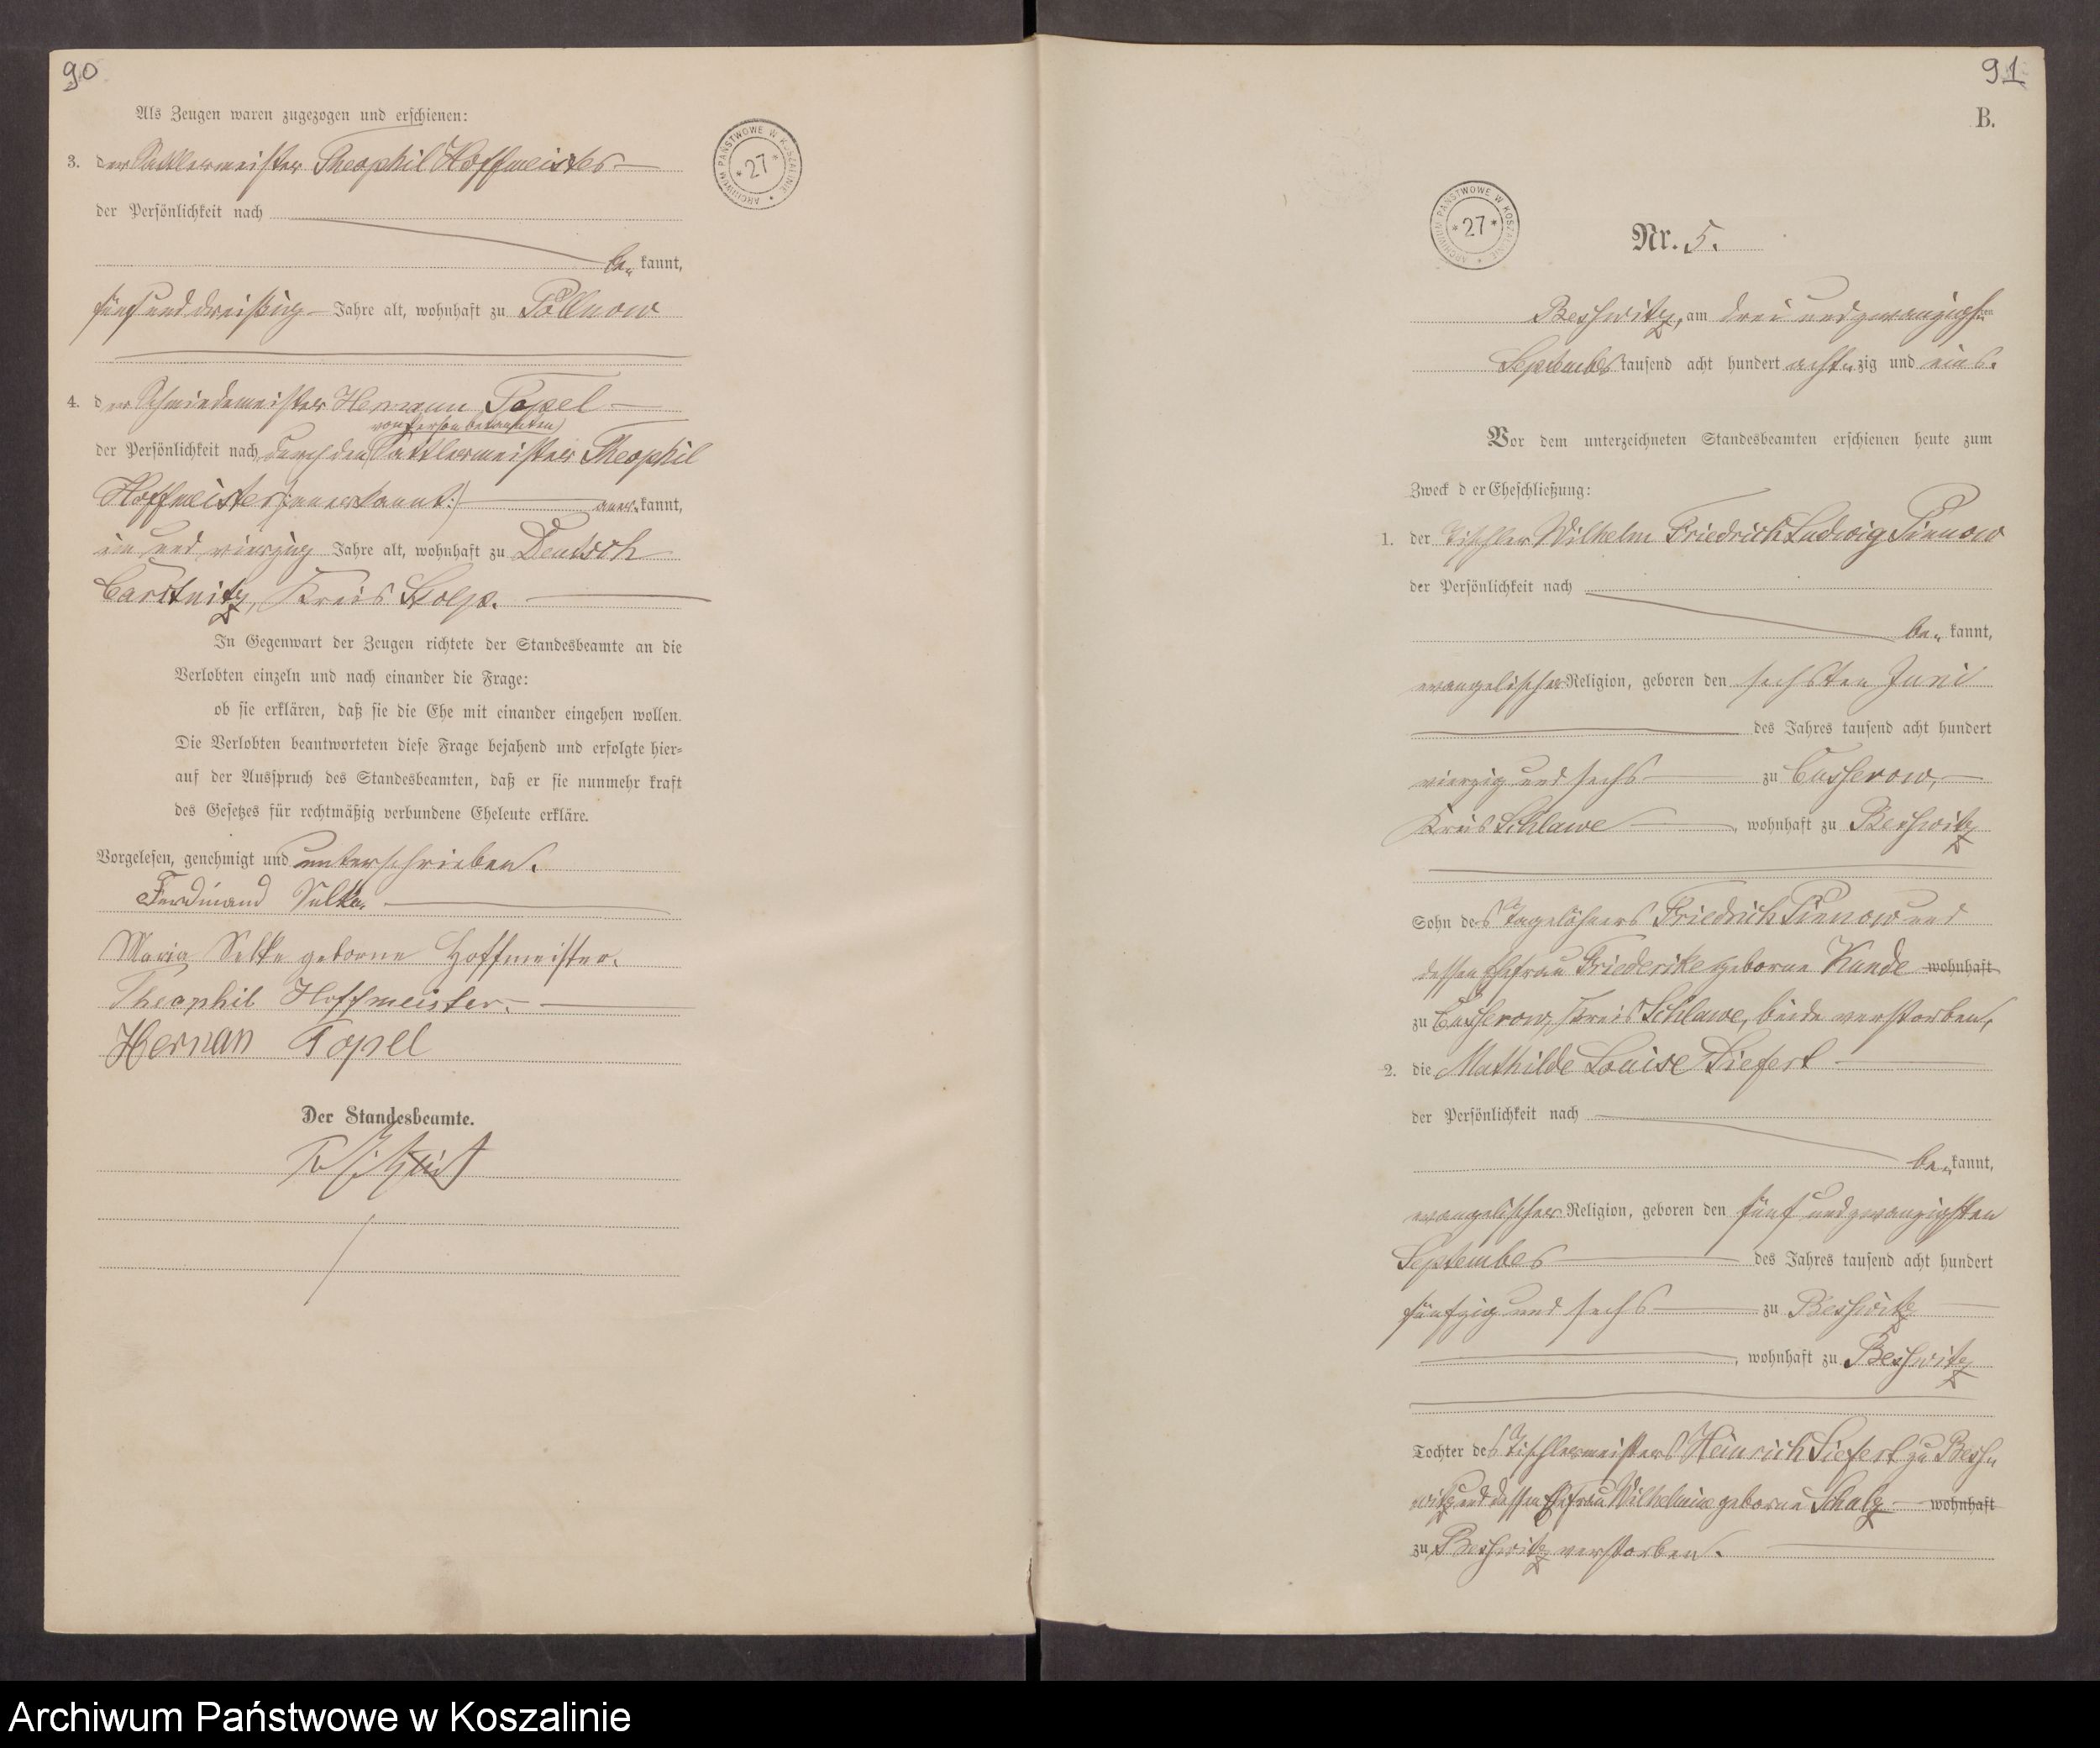 90
Als Zeugen waren zugezogen und erschienen:
3. der Sattlermeister Theophil Hoffmeister
der Persönlichkeit nach
be- kannt,
fünf und dreißig Jahre alt, wohnhaft zu Pollnow
4. der Schmiedemeister Hermann Topel
von Person bekannten
der Persönlichkeit nach durch den Sattlermeister Theophil
Hoffmeister kannt,
ein und vierzig Jahre alt, wohnhaft zu Deutsch
Carstnitz, Kreis Stolp.
In Gegenwart der Zeugen richtete der Standesbeamte an die
Verlobten einzeln und nach einander die Frage:
ob sie erklären, daß sie die Ehe mit einander eingehen wollen.
Die Verlobten beantworteten diese Frage bejahend und erfolgte hier-
auf der Ausspruch des Standesbeamten, daß er sie nunmehr kraft
des Gesetzes für rechtmäßig verbundene Eheleute erkläre.
Vorgelesen, genehmigt und unterschrieben.
Ferdinand Selke.
Maria Selke geborne Hoffmeister.
Theophil Hoffmeister.
Herman Topel
Der Standesbeamte.
ARCHIWUM PAŃSTWOWE W KOSZALINIE
* 27 *
91
B.
ARCHIWUM PAŃSTWOWE W KOSZALINIE
* 27 *
Nr. 5.
Beßwitz, am drei und zwanzigsten
September tausend acht hundert achtzig und eins.
Vor dem unterzeichneten Standesbeamten erschienen heute zum
Zweck der Eheschließung:
1. der Tischler Wilhelm Friedrich Ludwig Pinnow
der Persönlichkeit nach
be- kannt,
evangelischer Religion, geboren den sechsten Juni
des Jahres tausend acht hundert
vierzig und sechs zu Cusserow,
Kreis Schlawe, wohnhaft zu Beßwitz
Sohn des Tagelöhners Friedrich Pinnow und
dessen Ehefrau Friederike geborne Kunde wohnhaft
zu Cusserow, Kreis Schlawe, beide verstorben,
2. die Mathilde Louise Siefert
der Persönlichkeit nach
be- kannt,
evangelischer Religion, geboren den fünf und zwanzigsten
September des Jahres tausend acht hundert
fünfzig und sechs zu Beßwitz
, wohnhaft zu Beßwitz
Tochter des Tischlermeisters Heinrich Siefert zu Beß-
witz und dessen Ehefrau Wilhelmine geborne Schulz wohnhaft
zu Beßwitz verstorben.
Archiwum Państwowe w Koszalinie